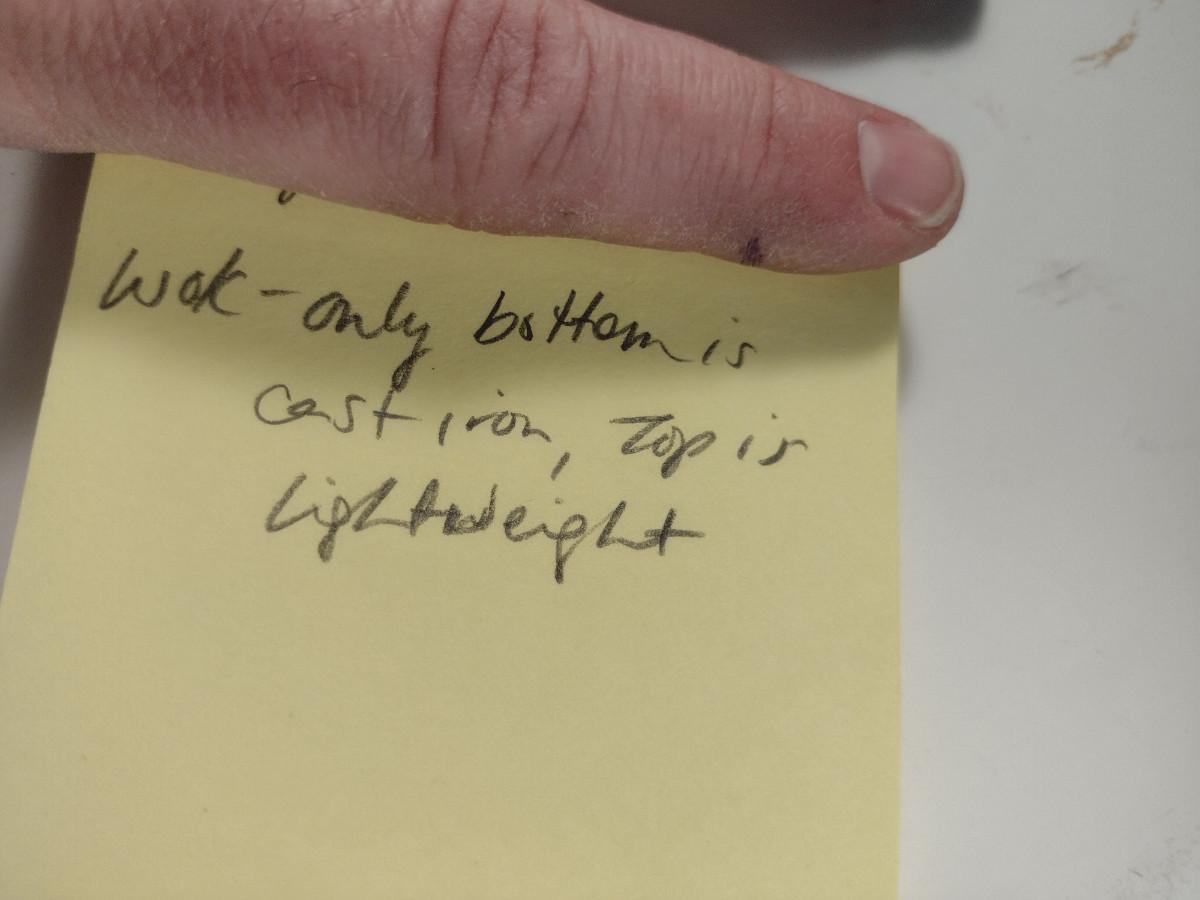 Wok - only bottom is
cast iron, Top is
lightweight